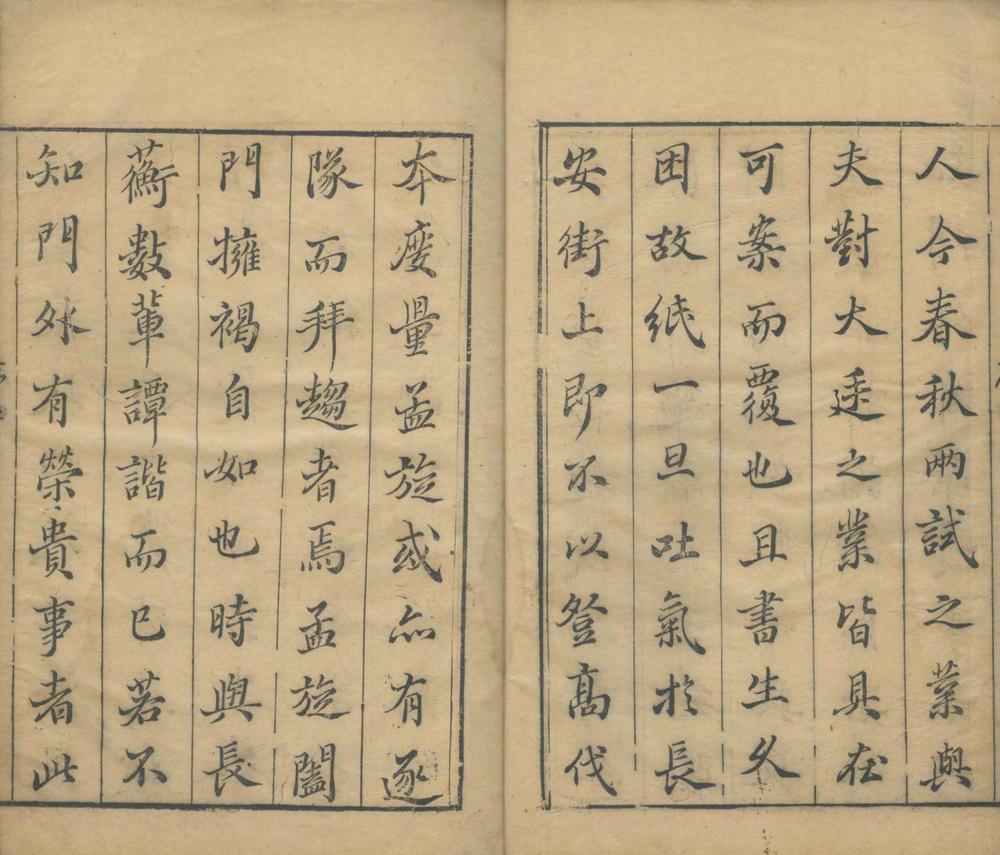 人今春秋兩試之業與
夫對大廷之業皆具在
可案而覆也且書生久
困故紙一旦吐氣於長
安街上即不以登高伐
夲度量孟旋或亦有逐
隊而拜趨者焉孟旋闔
門擁褐自如也時與長
蘅數輩譚諧而已若不
知門外有榮貴事者此